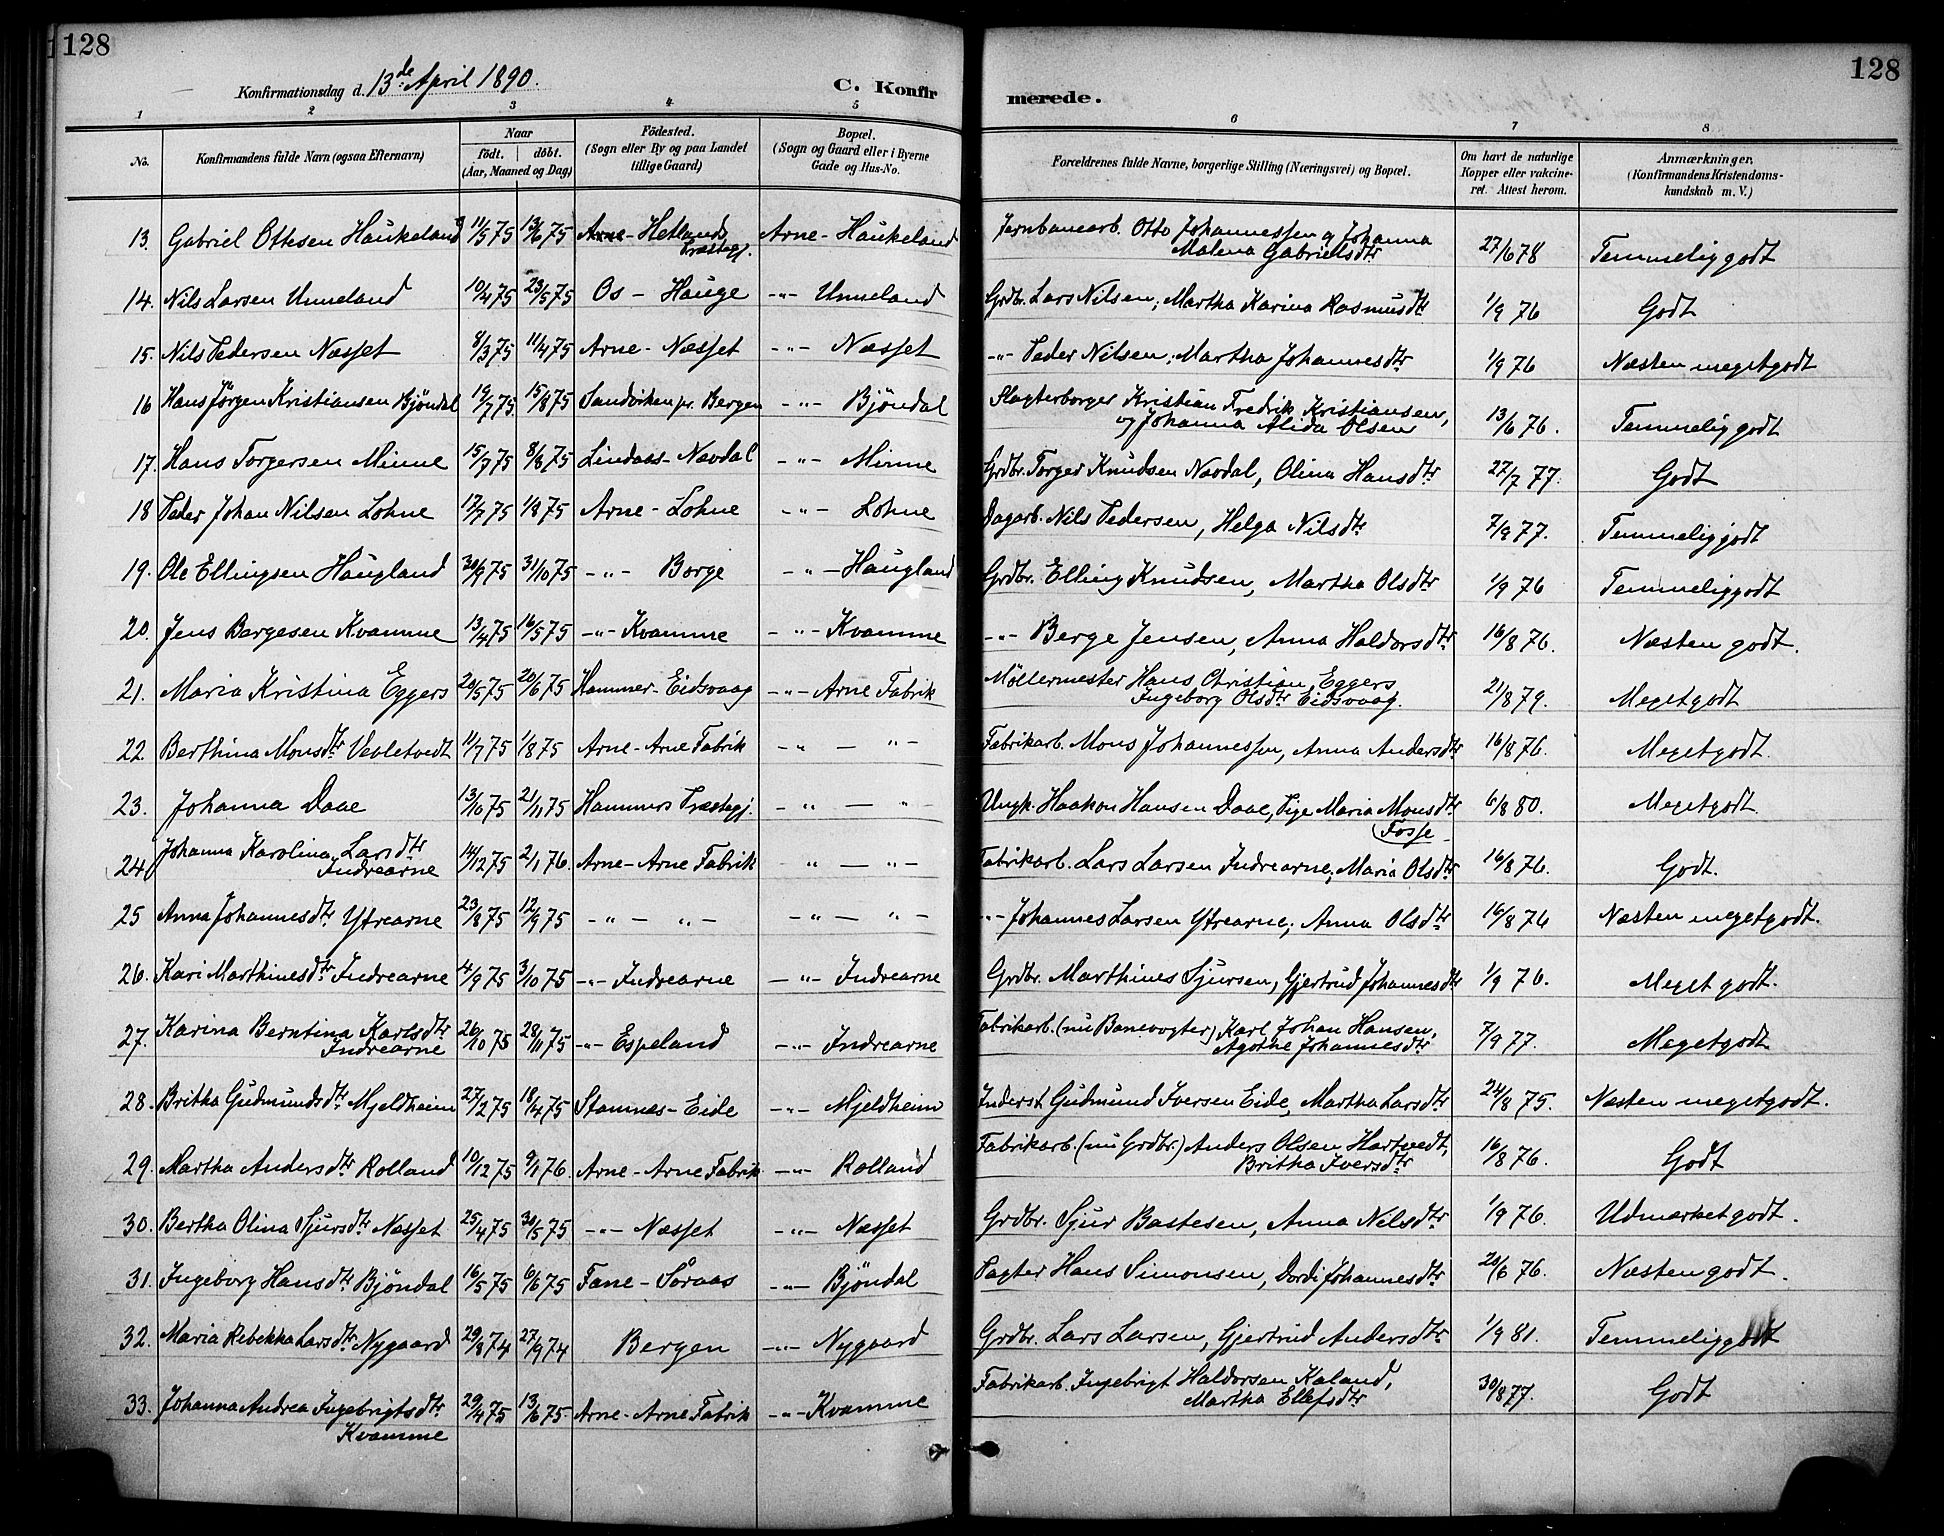 128
128
Konfirmationsdag d. 13de April 1890.
C. Konfirmerede.
1 2 3 4 5 6 7 8
No.
Konfirmandens fulde Navn (ogsaa Efternavn)
Naar
födt. döbt.
(Aar, Maaned og Dag)
Födested.
(Sogn eller By og paa Landet
tillige Gaard)
Bopæl.
(Sogn og Gaard eller i Byerne
Gade og Hus-No.
Forældrenes fulde Navne, borgerlige Stilling (Næringsvei) og Bopæl.
Om havt de naturlige
Kopper eller vakcine-
ret. Attest herom.
Anmærkninger.
(Konfirmandens Kristendoms-
kundskab m. V.)
13. Gabriel Ottesen Haukeland 11/5 75 13/6 75 Arne - Hetlands Præstegj. Arne - Haukeland Jernbanearb. Otto Johannessen og Johanna Malena Gabrielsdtr 27/6 78 Temmelig godt
14. Nils Larsen Unneland 10/4 75 23/5 75 Os - Hauge -"- Unneland Grdbr. Lars Nilsen; Martha Karina Rasmusdtr 1/9 76 Godt
15. Nils Pedersen Næsset 8/3 75 11/4 75 Arne - Næsset -"- Næsset -"- Peder Nilsen; Martha Johannesdtr 1/9 76 Næsten megetgodt
16 Hans Jörgen Kristiansen Bjöndal 19/7 75. 15/8 75 Sandviken pr. Bergen -"- Bjöndal Slagterborger Kristian Fredrik Kristiansen, og Johanna Alida Olsen 13/6 76. Temmelig godt
17. Hans Torgersen Minne 15/7 75 8/8 75 Lindaas - Nævdal -"- Minne Grdbr. Torger Knudsen Nævdal, Olina Hansdtr 27/7 77. Godt
18 Peder Johan Nilsen Lohne 17/7 75 1/8 75 Arne - Lohne -"- Lohne Dagarb. Nils Pedersen, Helga Nilsdtr 7/9 77. Temmeliggodt
19. Ole Ellingsen Haugland 30/9 75 31/10 75 -"- Borge -"- Haugland Grdbr. Elling Knudsen, Martha Olsdtr 1/9 76 Temmeliggodt
20. Jens Bergesen Kvamme 13/4 75 16/5 75 -"- Kvamme -"- Kvamme -"- Berge Jensen, Anna Haldorsdtr 16/8 76. Næsten godt.
21. Maria Kristina Eggers 20/5 75 20/6 75 Hammer - Eidsvaag -"- Arne Fabrik Möllermester Hans Christian Eggers Ingeborg Olsdtr Eidsvaag. 21/8 79. Megetgodt
22. Berthina Monsdtr Vevletvedt 11/7 75 1/8 75 Arne - Arne Fabrik -"- -"- Fabrikarb. Mons Johannessen, Anna Andersdtr 16/8 76. Megetgodt.
23. Johanna Daae 13/10 75 21/11 75 Hammers Præstegj. -"- -"- Ungk. Haakon Hansen Daae, Pige Maria Monsdtr Fosse 6/8 80. Megetgodt
24 Johanna Karolina Larsdtr Indrearne 14/12 75 2/1 76. Arne - Arne Fabrik -"- -"- Fabrikarb. Lars Larsen Indrearne; Maria Olsdtr 16/8 76. Godt.
25 Anna Johannesdtr Ytrearne 23/8 75 12/9 75 -"- -"- -"- -"- -"- Johannes Larsen Ytrearne; Anna Olsdtr 16/8 76 Næsten megetgodt.
26. Kari Marthinesdtr Indrearne 4/9 75 3/10 75 -"- Indrearne -"- Indrearne Grdbr. Marthines Sjursen, Gjertrud Johannesdtr 1/9 76. Meget godt.
27. Karina Berntina Karlsdtr Indrearne 26/10 75 28/11 75 -"- Espeland -"- Indrearne Fabrikarb. (nu Banevogter) Karl Johan Hansen, Agothe Johannesdtr 7/9 77. Megetgodt
28. Britha Gudmundsdtr Mjeldheim 27/2 75 18/4 75 Stamnes - Eide -"- Mjeldheim Inderst Gudmund Iversen Eide, Martha Larsdtr 24/8 75. Næsten megetgodt.
29. Martha Andersdtr Rolland 10/12 75 9/1 76. Arne - Arne Fabrik -"- Rolland Fabrikarb. (nu Grdbr.) Anders Olsen Hartvedt, Britha Iversdtr 16/8 76. Godt
30. Bertha Olina Sjursdtr Næsset 25/4 75 30/5 75 -"- Næsset -"- Næsset Grdbr. Sjur Bastesen, Anna Nilsdtr 1/9 76. Udmærket godt.
31. Ingeborg Hansdtr Bjöndal 16/5 75 6/6 75 Fane - Söraas -"- Bjöndal Hans Simonsen, Dordi Johannesdtr 20/6 76. Næsten godt.
32. Maria Rebekka Larsdtr Nygaard 29/8 74 27/9 74 Bergen -"- Nygaard Grdbr. Lars Larsen, Gjertrud Andersdtr 1/9 81. Temmeliggodt
33. Johanna Andrea Ingebrigtsdtr Kvamme 29/4 75 13/6 75. Arne - Arne Fabrik -"- Kvamme Fabrikarb. Ingebrigt Haldorsen Kaland, Martha Ellefsdtr 30/8 77. Godt